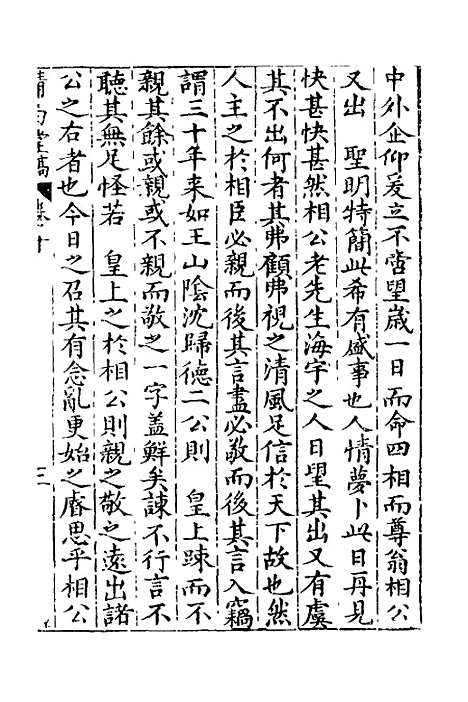 中外企仰爰立不啻望歲一日而命四相而尊翁相公
又出　聖明特簡此希有盛事也人情夢卜此日再見
快甚快甚然相公老先生海宇之人日望其出又有虞
其不出何者其弗顧弗視之清風足信於天下故也然
人主之於相臣必親而後其言盡必敬而後其言入竊
謂三十年来如王山陰沈歸德二公則　皇上踈而不
親其餘或親或不親而敬之一字盖鮮矣諫不行言不
聽其無足怪若　皇上之於相公則親之敬之遠出諸
公之右者也今日之召其有念亂更始之睿思乎相公
三